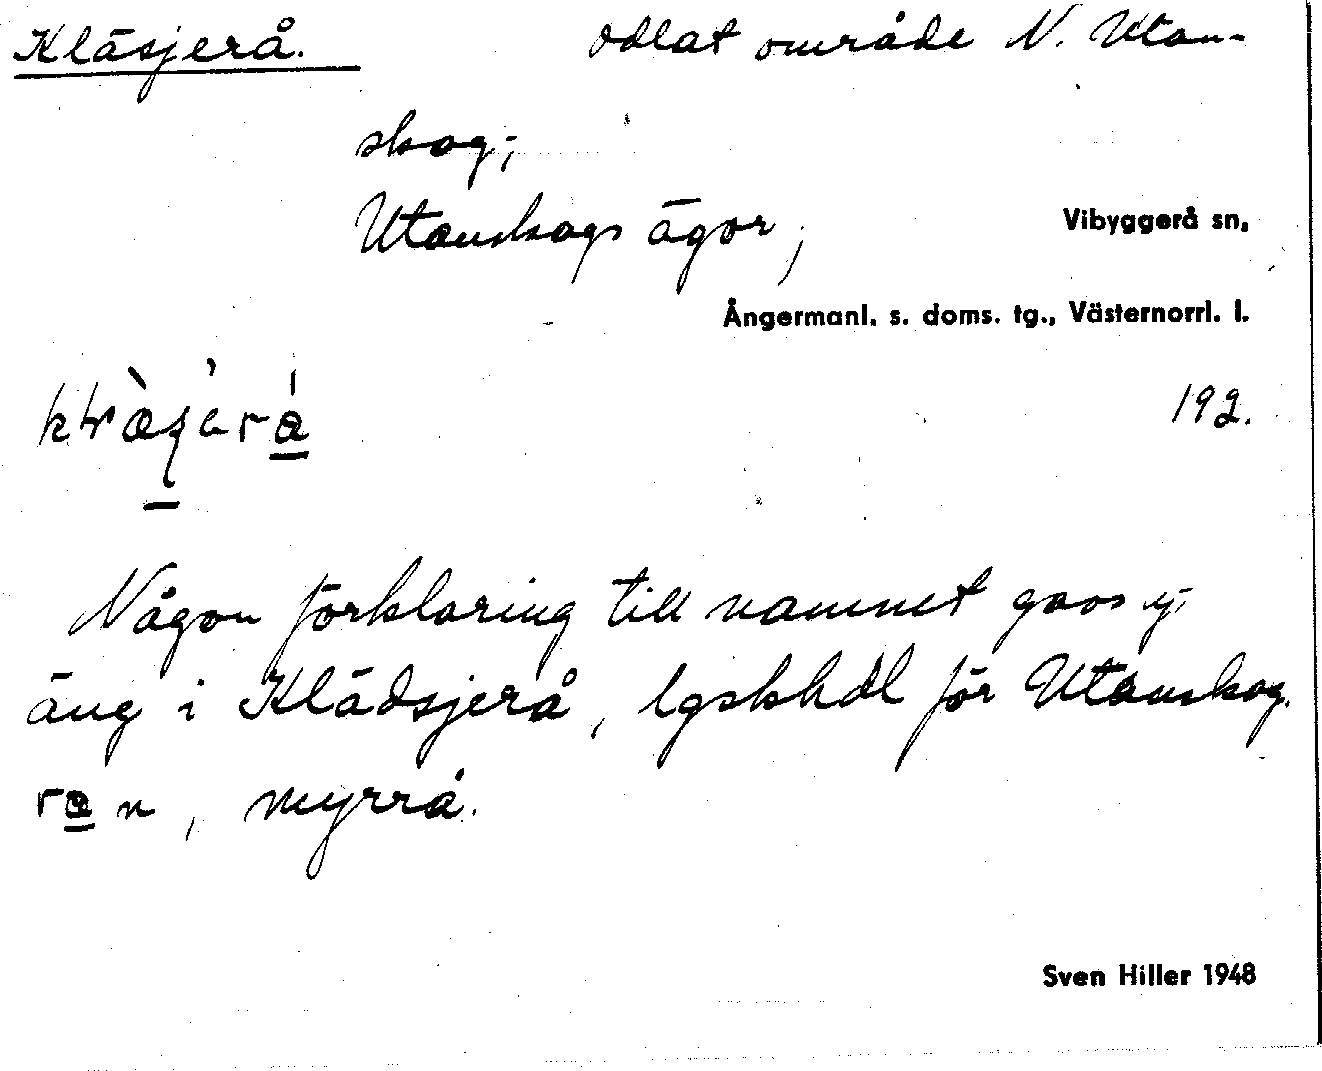 Kläsjerå. odlat område N. Utan-
skog;
Utanskogs ägor,
Vibyggerå sn,
Ångermanl. s. doms. tg., Västernorrl. l.
192.
Någon förklaring till namnet gavs ej;
äng i Klädsjerå, lgskhdl för Utanskog.
n, myrrå.
Sven Hiller 1948